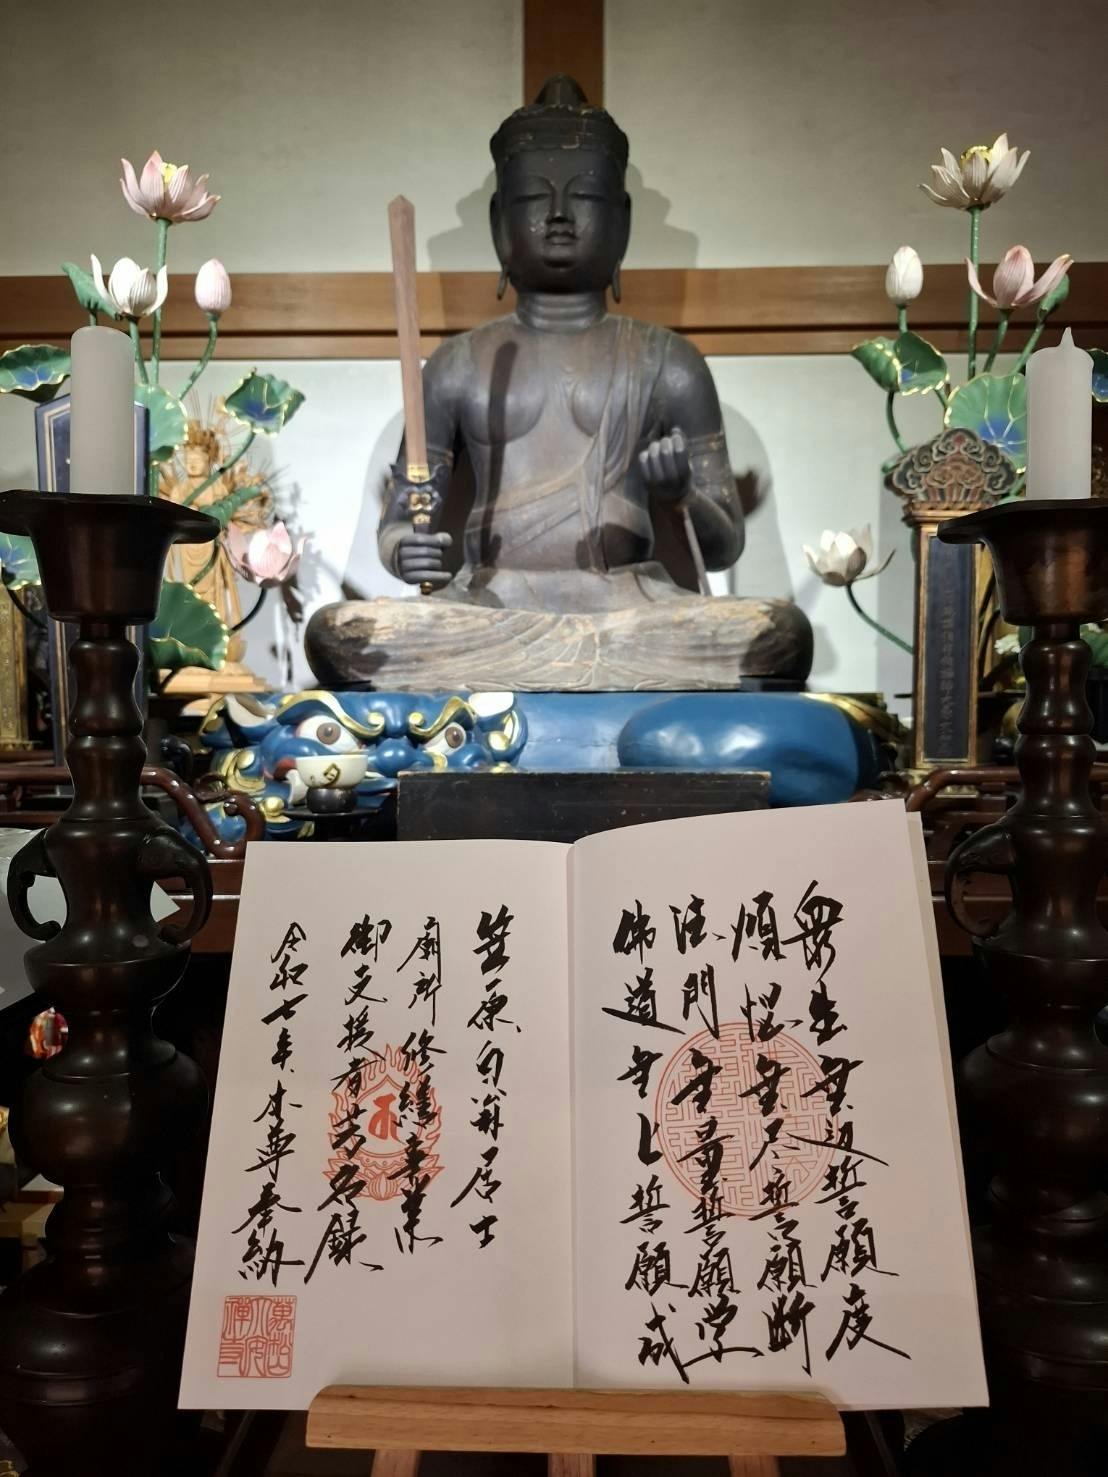 衆生無辺誓願度
煩悩無尽誓願断
法門無量誓願学
佛道無上誓願成
笠原白翁居士
廟所修繕事業
御支援者芳名録
令和七年本尊奉納